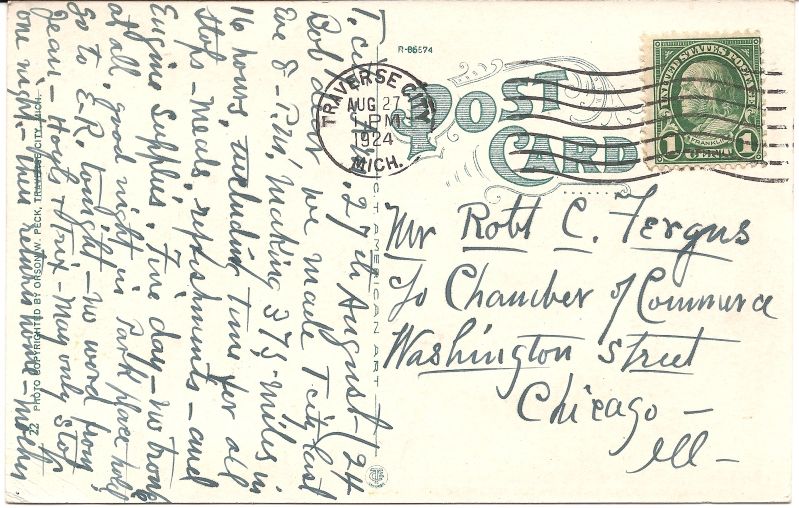 T. City, Mich, 27th August - /24
Bob dear, we made T city last
Eve 8 - P.M., making 375 - miles in
16 hours, including time for all
stops - meals, refreshments - and
Engine supplies. Fine day - no trouble
at all, good night in Park place hotel
Go to E.R. tonight - no word from
Jean - Hoyts + Trix - May only stop
one night - then return home - mother
R-86674
POST
CARD
TRAVERSE CITY
AUG 27
PM
1924
MICH.
UNITED STATES POSTAGE
FRANKLIN
1 CENT 1
Mr Robt C. Fergus
c/o Chamber of Commerce
Washington Street
Chicago -
Ill -
22 PHOTO COPYRIGHTED BY ORSON W. PECK, TRAVERSE CITY, MICH.
CT AMERICAN ART